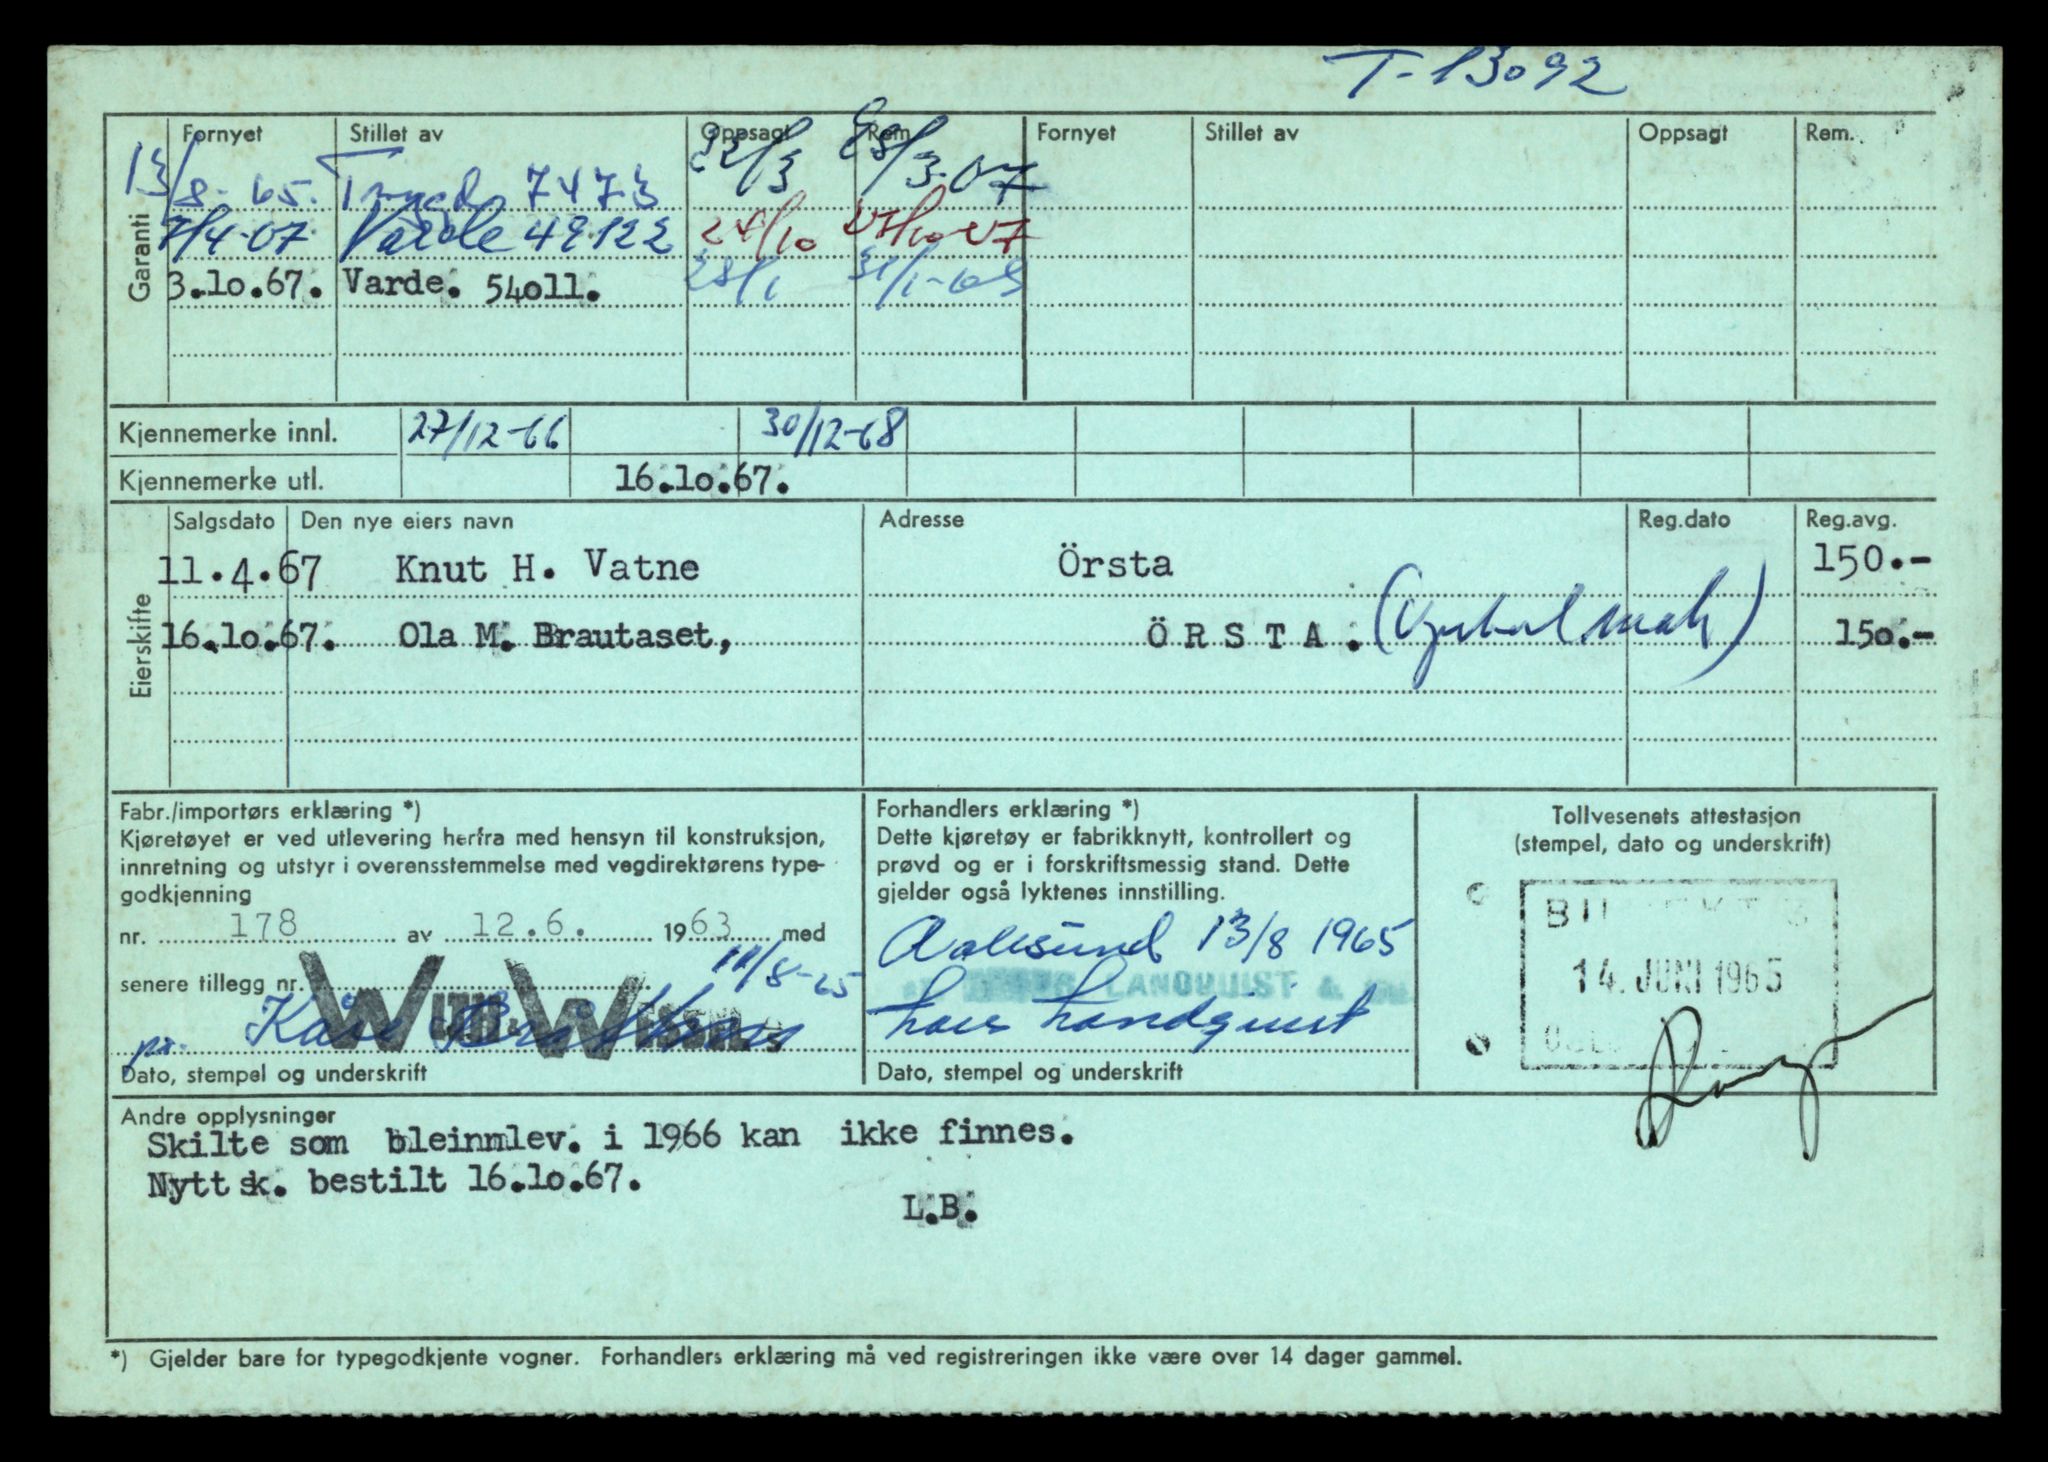 T-13092
Fornyet Stillet av Oppsagt Rem. Fornyet Stillet av Oppsagt Rem.
13/8-65. Trygd 7473 22/3 28/3-67
7/4-67 Varde 49122 24/10 27/10-67
3.10.67. Varde. 54011. 28/1 31/1-69
Garanti
Kjennemerke innl. 27/12-66 30/12-68
Kjennemerke utl. 16.10.67.
Salgsdato Den nye eiers navn Adresse Reg.dato Reg.avg.
11.4.67 Knut H. Vatne Örsta 150.-
16.10.67. Ola M. Brautaset, ÖRSTA. 150.-
Eierskifte
Fabr./importørs erklæring *)
Kjøretøyet er ved utlevering herfra med hensyn til konstruksjon,
innretning og utstyr i overensstemmelse med vegdirektørens type-
godkjenning
nr. 178 av 12.6. 1963 med
senere tillegg nr. 11/8-65
pr. Kåre
Dato, stempel og underskrift
Forhandlers erklæring *)
Dette kjøretøy er fabrikknytt, kontrollert og
prøvd og er i forskriftsmessig stand. Dette
gjelder også lyktenes innstilling.
Aalesund 13/8 1965
LANDQUIST &
Lars Landquist
Dato, stempel og underskrift
Tollvesenets attestasjon
(stempel, dato og underskrift)
14. JUNI 1965
Andre opplysninger
Skilte som bleinnlev. i 1966 kan ikke finnes.
Nytt sk. bestilt 16.10.67.
L.B.
*) Gjelder bare for typegodkjente vogner. Forhandlers erklæring må ved registreringen ikke være over 14 dager gammel.